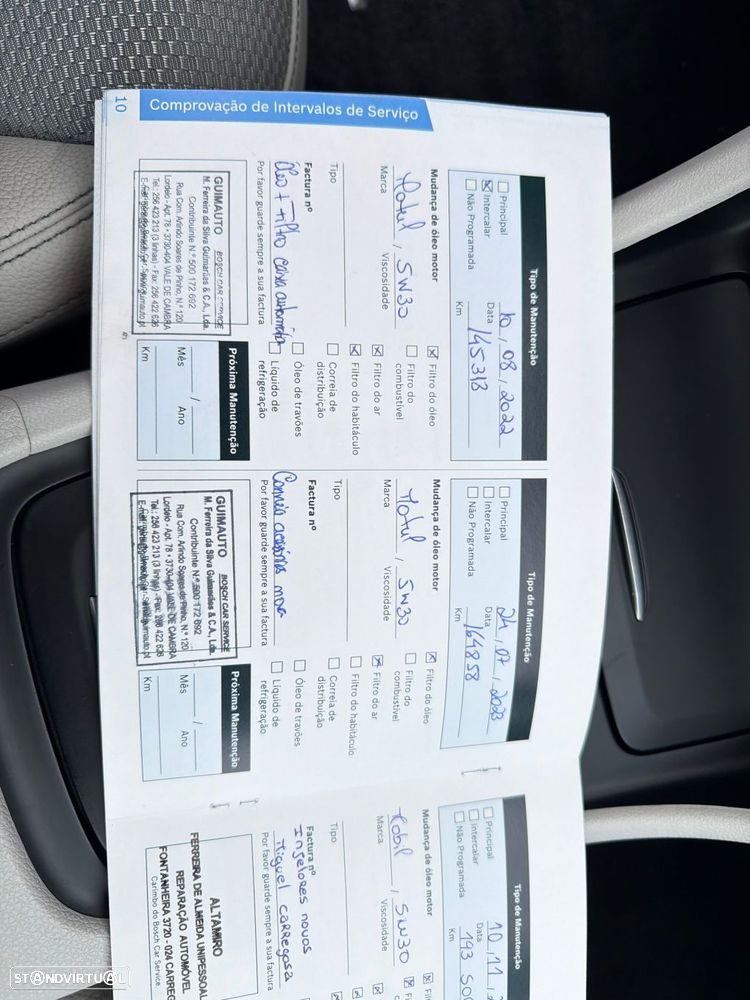 10
Comprovação de Intervalos de Serviço
Tipo de Manutenção
Principal
Intercalar
Não Programada
Data
10 / 08 / 2022
Km
145313
Mudança de óleo motor
Motul, 5W30
Marca
Viscosidade
Tipo
Factura nº
Óleo + Filtro caixa automática
Por favor guarde sempre a sua factura
Filtro do óleo
Filtro do combustível
Filtro do ar
Filtro do habitáculo
Correia de distribuição
Óleo de travões
Líquido de refrigeração
GUIMAUTO BOSCH CAR SERVICE
M. Ferreira da Silva Guimarães & C.A., Lda.
Contribuinte N.º 500 172 692
Rua Com. Arlindo Soares de Pinho, N.º 120
Lordelo - Apt. 78 • 3730-404 VALE DE CAMBRA
Tel.: 256 423 213 (3 linhas) - Fax: 256 422 626
Próxima Manutenção
Mês
/
Ano
Km
Tipo de Manutenção
Principal
Intercalar
Não Programada
Data
24 / 07 / 2023
Km
164858
Mudança de óleo motor
Motul, 5W30
Marca
Viscosidade
Tipo
Factura nº
Correia acessórios nova
Por favor guarde sempre a sua factura
Filtro do óleo
Filtro do combustível
Filtro do ar
Filtro do habitáculo
Correia de distribuição
Óleo de travões
Líquido de refrigeração
GUIMAUTO BOSCH CAR SERVICE
M. Ferreira da Silva Guimarães & C.A., Lda.
Contribuinte N.º 500 172 692
Rua Com. Arlindo Soares de Pinho, N.º 120
Lordelo - Apt. 78 • 3730-404 VALE DE CAMBRA
Tel.: 256 423 213 (3 linhas) - Fax: 256 422 626
Próxima Manutenção
Mês
/
Ano
Km
Tipo de Manutenção
Principal
Intercalar
Não Programada
Data
10 / 11 /
Km
193 500
Mudança de óleo motor
Mobil, 5W30
Marca
Viscosidade
Tipo
Factura nº
Injetores novos
Miguel Carregosa
Por favor guarde sempre a sua factura
ALTAMIRO
FERREIRA DE ALMEIDA UNIPESSOAL
REPARAÇÃO AUTOMÓVEL
FONTANHEIRA 3720 - 024 CARREG
Carimbo do Bosch Car Service
STANDVIRTUAL